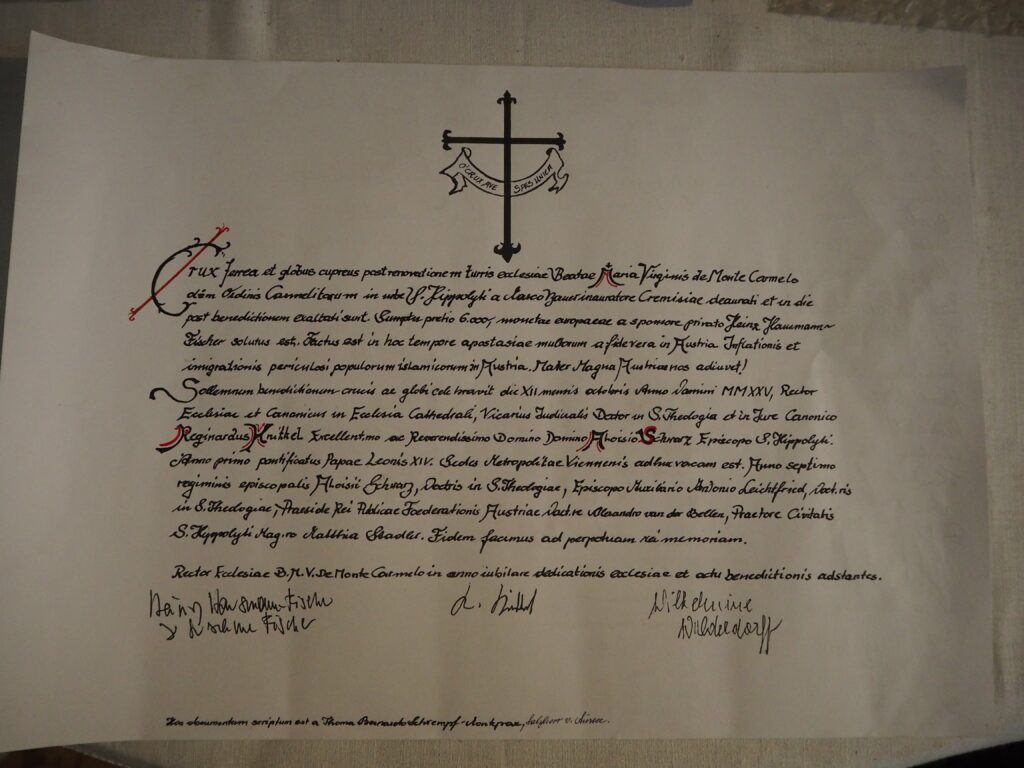 O CRUX AVE SPES UNICA
Crux ferrea et globus cupreus post renovationem turris ecclesiae Beatae Maria Virginis de Monte Carmelo
olim Ordinis Carmelitarum in urbe S. Hippolyti a Vasco Bauer inauratore Cremisiae deaurati et in die
post benedictionem exaltati sunt. Sumptu pretio 6.000,- monetae europaeae a sponsore privato Heinz Hausmann-
Fischer solutus est. Factus est in hoc tempore apostasiae multorum a fide vera in Austria. Inflationis et
inmigrationis periculosi populorum islamicorum in Austria. Mater Magna Austriae nos adiuvet!
Sollemnem benedictionem crucis ac globi celebravit die XII mensis octobris Anno Domini MMXXV, Rector
Ecclesiae et Canonicus in Ecclesia Cathedrali, Vicarius Iudicialis Doctor in S. Theologia et in Jure Canonico
Reginardus Knittel Excellentimo ac Reverendissimo Domino Domino Aloisio Schwarz Episcopo S. Hippolyti.
Anno primo pontificatus Papae Leonis XIV. Sedes Metropolitae Viennenis adhuc vacam est. Anno septimo
regiminis episcopalis Aloisii Schwarz, Doctris in S. Theologiae, Episcopo Auxiliario Antonio Leichtfried, Doct.ris
in S. Theologiae, Praeside Rei Publicae Foederationis Austriae Doct.re Alexandro van der Bellen, Praetore Civitatis
S. Hyppolyti Mag.ro Matthia Stadler. Fidem facimus ad perpetuam rei memoriam.
Rector Ecclesiae B.M.V. De Monte Carmelo in anno iubilare dedicationis ecclesiae et actu benedictionis adstantes.
Heinz Hausmann-Fischer
Fischer
R. Knittel
Wilhelmine
Wilderdorff
Hoc documentum scriptum est a Thoma Bernardo Schrempf